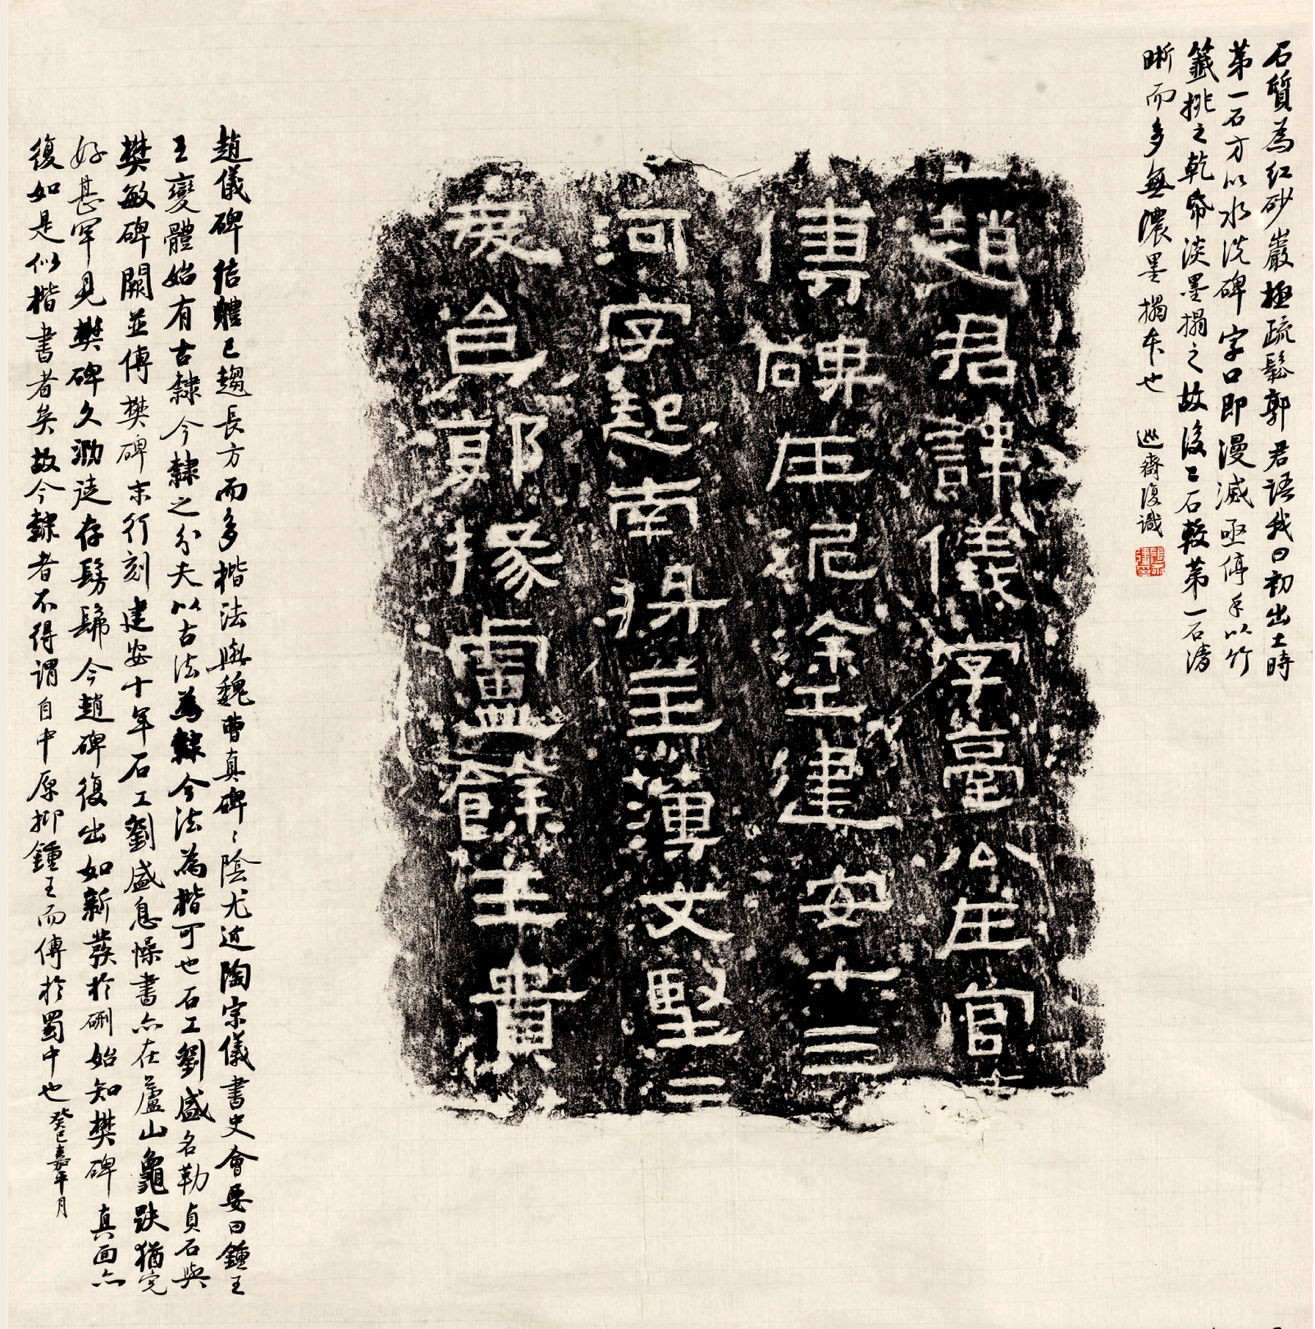 石質為紅砂巖極疏鬆郭君語我曰初出土時
第一石方以水洗碑字口即漫滅亟停手以竹
籤挑之乾帋淡墨搨之故後二石較第一石清
晰而多無濃墨搨本也 巡齋復識
趙君諱儀字臺公在官
書碑在尼除工建安十三
河字起南掾主薄文堅二
展負鄭掾盧餘羊貴
趙儀碑結體已趨長方而多楷法與魏曹真碑〻陰尤近陶宗儀書史會要曰鍾王
變體始有古隸今隸之分夫以古法為隸今法為楷可也石工劉盛名勒貞石與
樊敏碑闕並傳樊碑末行刻建安十年石工劉盛息懆書亦在蘆山龜趺猶完
好甚罕見樊碑久泐徒存髣髴今趙碑復出如新發於硎始知樊碑真面亦
復如是似楷書者矣故今隸者不得謂自中原抑鍾王而傳於蜀中也癸巳嘉平月